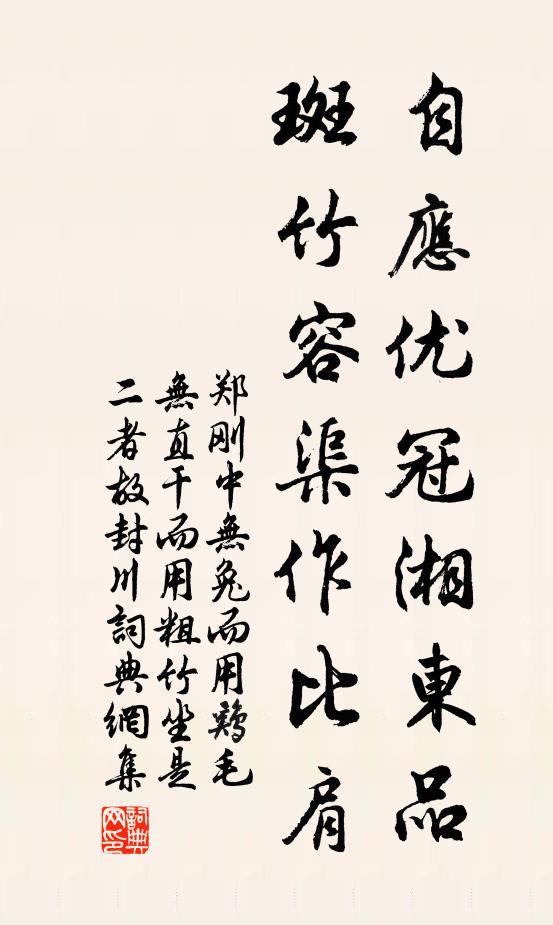 自應优冠湘東品
斑竹容渠作比肩
郑刚中無兔而用鷄毛
無直干而用粗竹坐是
二者故封川詞典網集
詞典网印